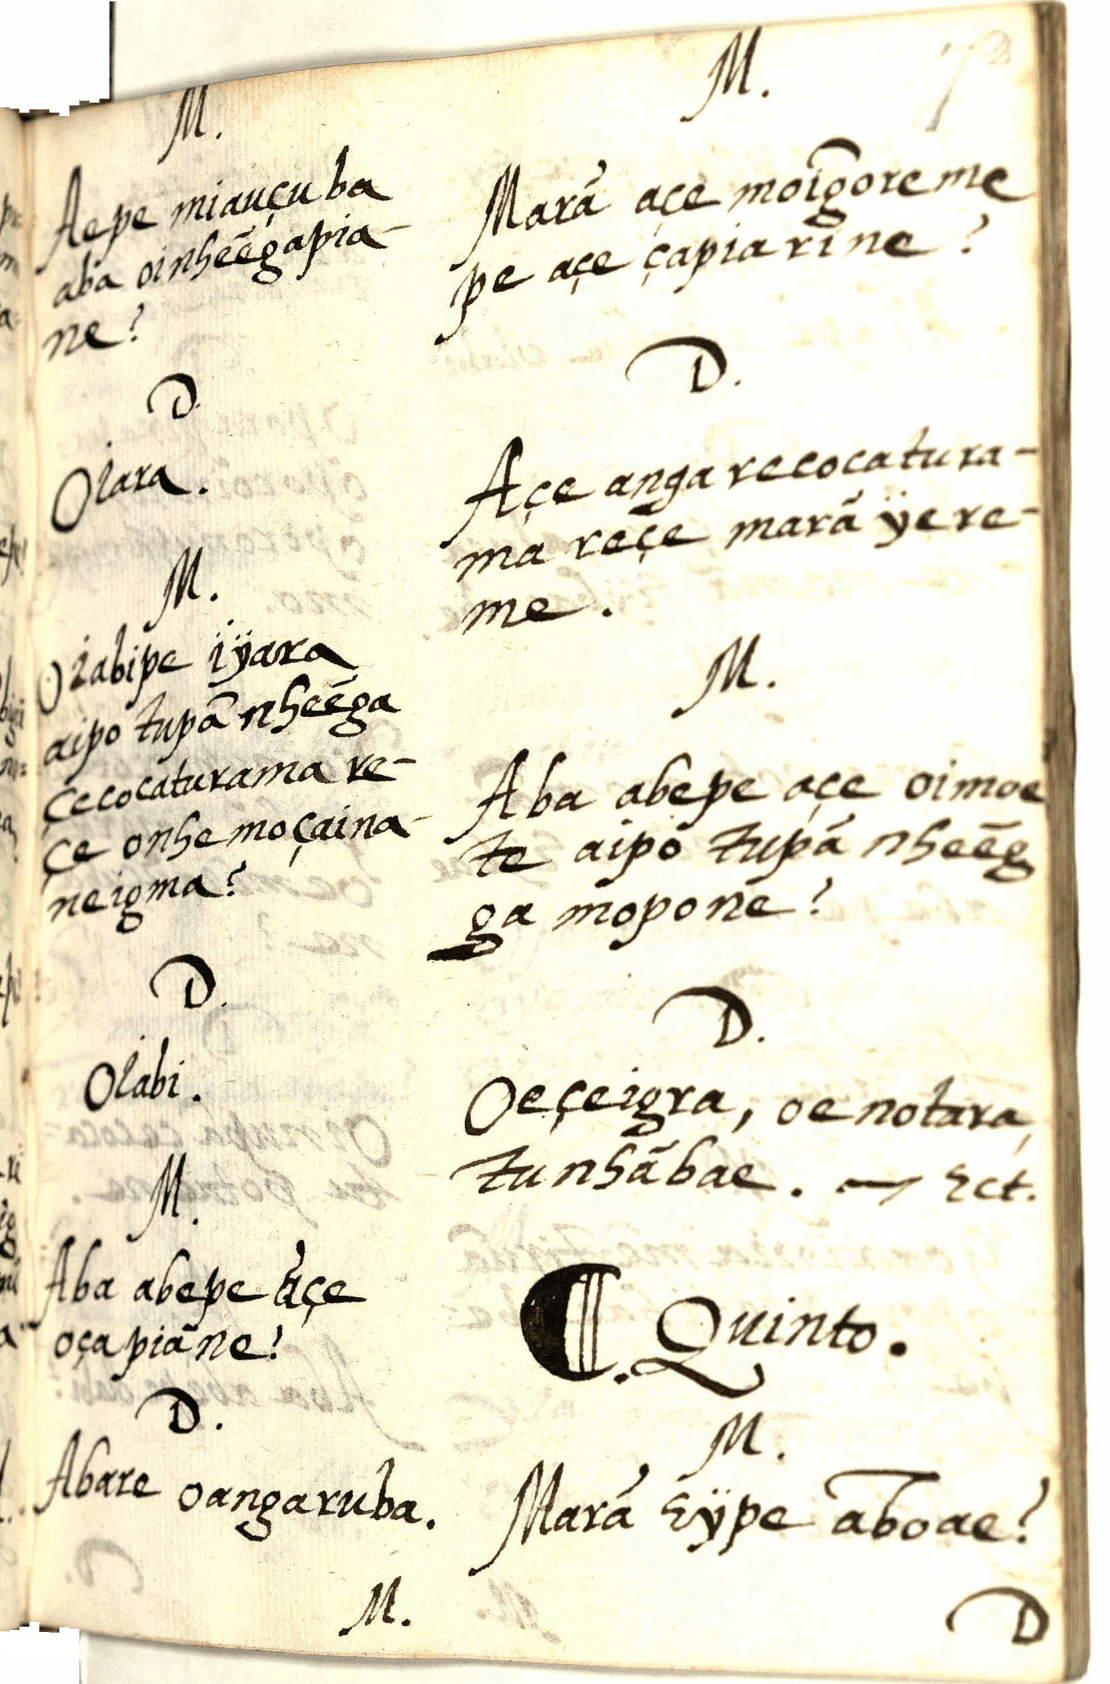 M.
Aepe miauçuba
aba oinheẽgapia-
ne?
D.
Oîara.
M.
Oîabipe iÿara
aipo tupã nheẽga
çecocaturama re-
çe onhemoçaina-
neigma?
D.
Oîabi.
M.
Aba abepe açe
oçapiãne?
D.
Abare oangaruba.
M.
M.
Marã açe moigõreme
pe açe çapiarine?
D.
Açe angarecocatura-
ma reçe marã ÿere-
me.
M.
Aba abepe açe oimoe
te aipo tupã nheẽg
ga mopone?
D.
Oeçeigra, oenotara,
tunhãbae. — &ct.
Quinto.
M.
Marã eÿpe aboae?
D